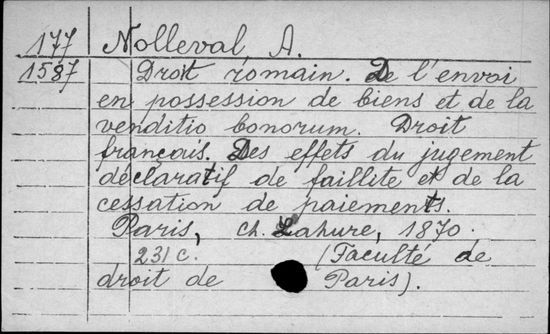 177 Nolleval A.
1587 Droit romain. De l'envoi
en possession de biens et de la
venditio bonorum. Droit
français. Des effets du jugement
déclaratif de faillite et de la
cessation de paiements.
Paris, ch. Lahure, 1870.
231 c. (Faculté de
droit de Paris).